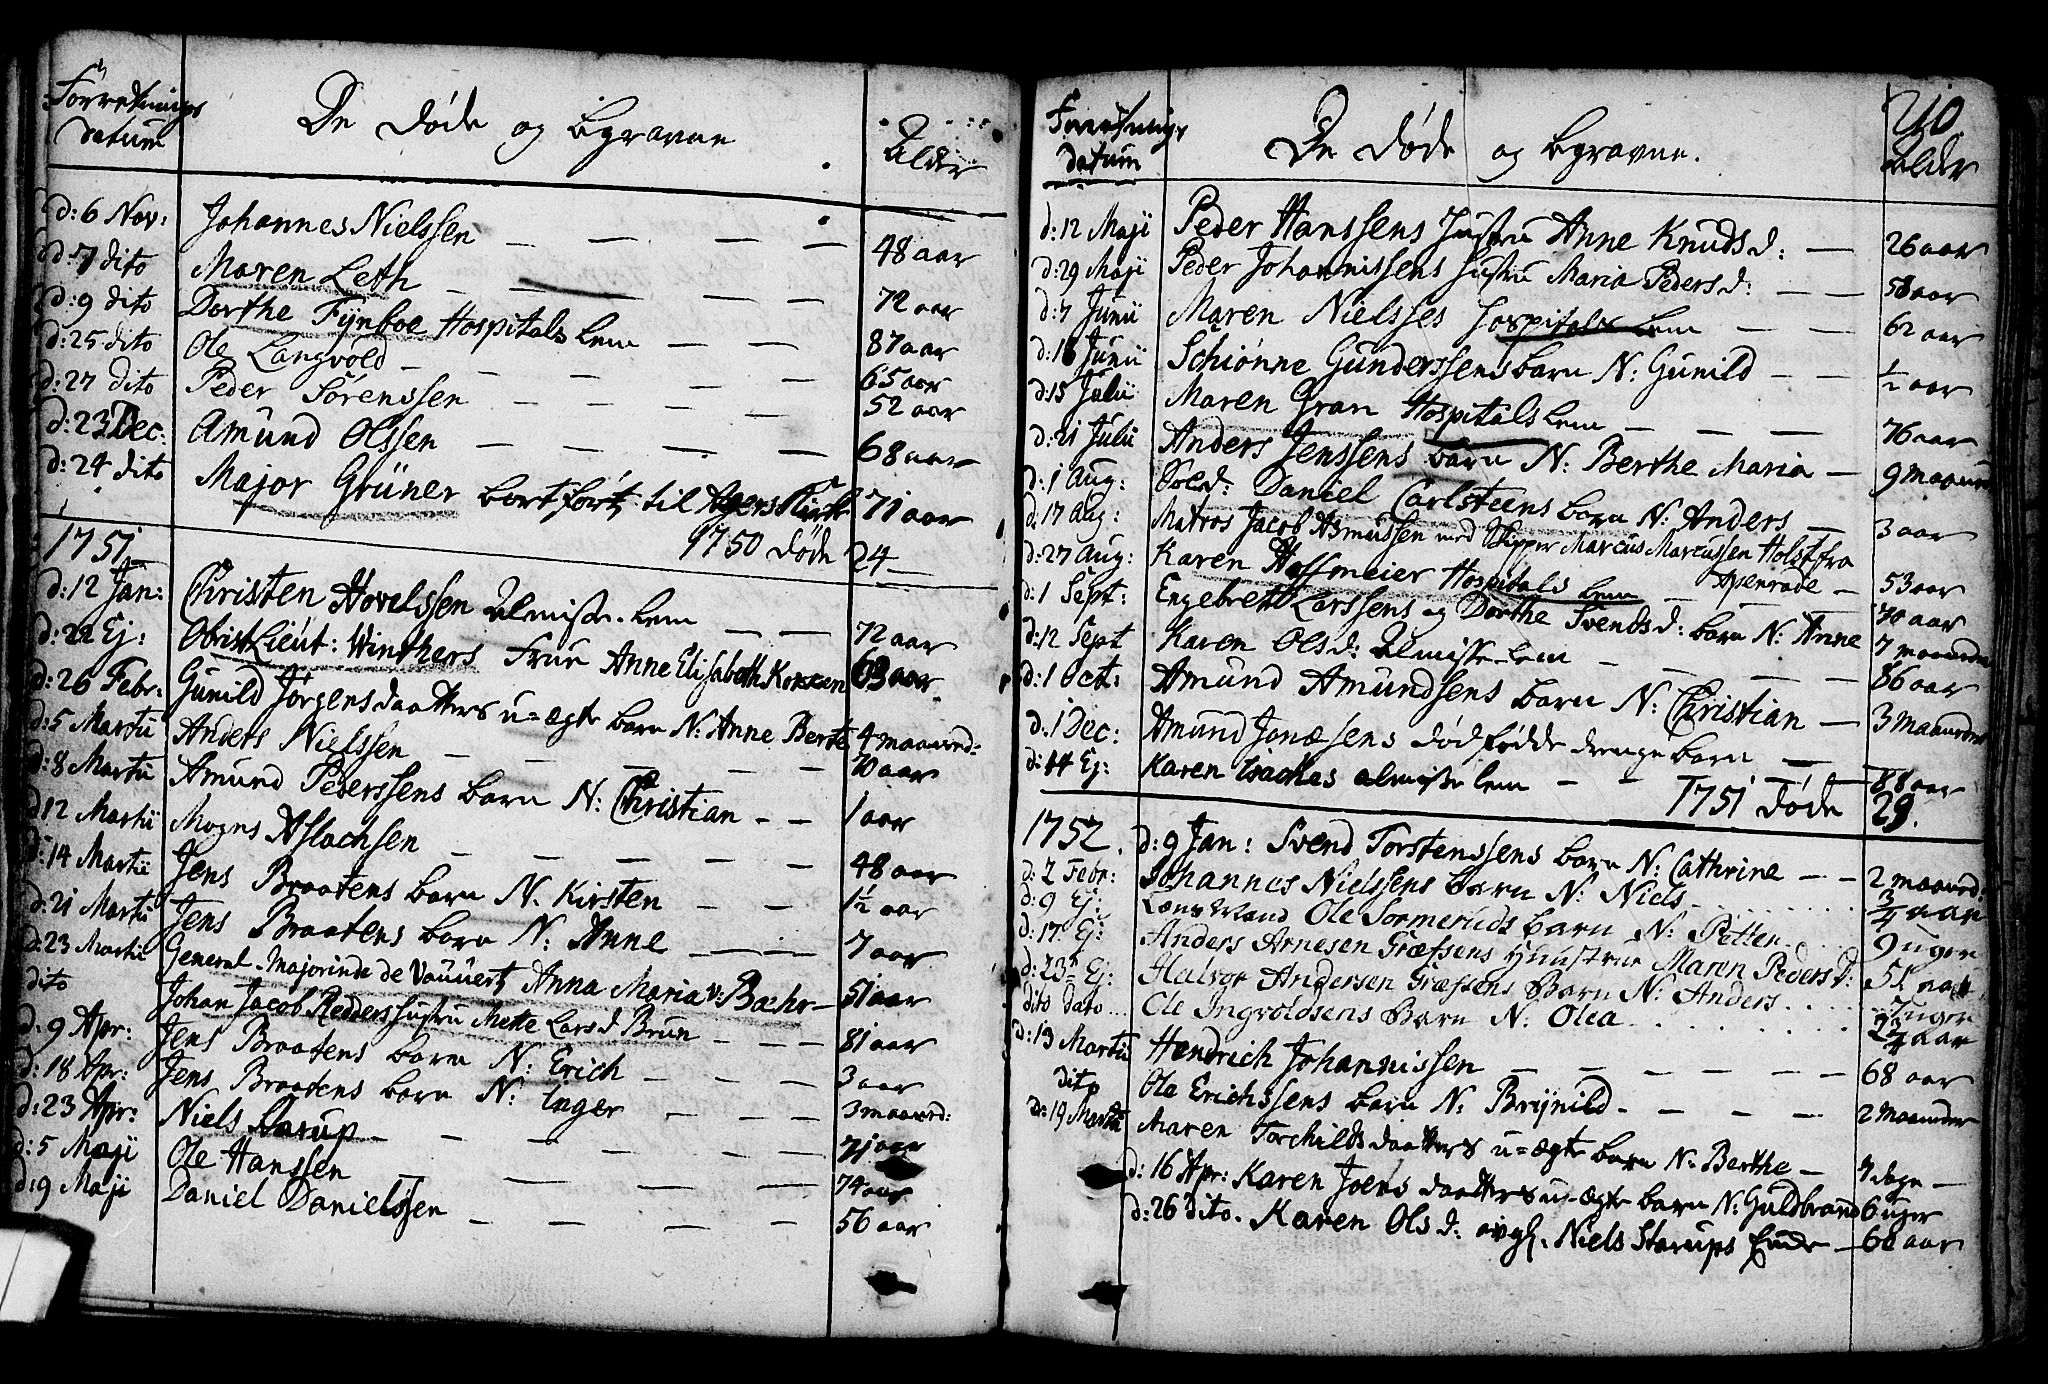 Forretnings
datum
De døde og begravne
Alder
d: 6 Nov: Johannes Nielssen — — — — 48 aar
d: 7 dito Maren Leth — — — — 72 aar
d: 9 dito Dorthe Fÿnboe Hospitals Lem — — 87 aar
d: 25 dito Ole Langvold — — — — 65 aar
d: 27 dito Peder Sörenssen — — — — 52 aar
d: 23 Dec: Amund Olssen — — — — 68 aar
d: 24 dito Major Grüner bortført til Agers Kirke 71 aar
1750 døde 24 —
1751
d: 12 Jan: Christen Hovelssen Almisse-Lem — — 72 aar
d: 22 Ej: Obrist Lieut: Winthers Frue Anne Elisabeth 63 aar
d: 26 Febr: Gunild Jörgensdaatters u-ægte barn N: Anne Berte 4 maaned:
d: 5 Martii Anders Nielssen — — — — 70 aar
d: 8 Martii Amund Pederssens barn N: Christian — — 1 aar
d: 12 Martii Mogns Aslachsen — — — — 48 aar
d: 14 Martii Jens Braatens barn N. Kirsten — — 1½ aar
d: 21 Martii Jens Braatens barn N: Anne — — 7 aar
d: 23 Martii General-Majorinde de Vauuert Anna Maria v: Bæhr — 51 aar
dito Johan Jacob Redders hustru Mette Lars d Brun — — 81 aar
d: 9 Apr: Jens Braatens barn N: Erich — — — 3 aar
d: 18 Apr: Jens Braatens barn N: Inger — — — 3 maaned:
d: 23 Apr: Niels Starup — — — — 71 aar
d: 5 Maji Ole Hanssen — — — 74 aar
d: 9 Maji Daniel Danielssen — — — — 56 aar
210
Forretnings
datum
De døde og begravne.
Alder
d: 12 Maji Peder Hanssens hustru Anne Knuds d: — 26 aar
d: 29 Maji Peder Johannissens hustru Maria Peders d: — — 58 aar
d: 7 Junii Maren Nielsses Hospitals Lem — — 62 aar
d: 18 Junii Schiönne Gunderssens barn N: Gunild — — ½ aar
d: 15 Julii Maren Gran Hospitals Lem — — — 76 aar
d: 21 Julii Anders Jenssens barn N: Berthe Maria — 9 maaneder
d: 1 Aug: Sold: Daniel Carlsteens barn N: Anders — 3 aar
d: 17 Aug: Matros Jacob Asmussen med Skipper Marcus Marcussen Holst fra
Apenrade — 53 aar
d: 27 Aug: Karen Hoffmeier Hospitals Lem — 70 aar
d: 1 Sept: Engebrett Larssens og Dorthe Svends d: barn N: Anne 7 maaneder
d: 12 Sept Karen Ols d: Almisse-Lem — — — — 86 aar
d: 1 Oct: Amund Amundsens barn N: Christian — 3 maaneder
d: 1 Dec: Amund Jonæsens dødfødde drenge barn — —
d: 14 Ej: Karen Isaches almisse lem — — 88 aar
1751 døde 29.
1752. d: 9 Jan: Svend Torstenssens barn N: Cathrine — — 2 maaned:
d: 2 Febr: Johannes Nielssens barn N: Niels ¾ aar
d: 9 Ej: Ole Sormeruds barn N: Petter 9 uger
d: 17. Ej: Anders Arnesen Græssens Huustrue Maren Peders D: 51 aar
d: 23 Ej: Halvor Andersen Græssens Barn N: Anders uger
dito dato Ole Ingvoldsens Barn N: Olea 2¾ aar
d: 13 Martii Hendrich Johannissen — — — — 68 aar
dito Ole Erichssens barn N: Brÿnild — — — — 2 maaneder
d: 19 Martii Maren Torchilds daatters u-ægte barn N: Berthe — 7 dage —
d: 16 Apr: Karen Joens daatters u-ægte barn N: Guldbrand 6 uger
d: 26 dito. Karen Ols d: avgl. Niels Starups Enke — 60 aar